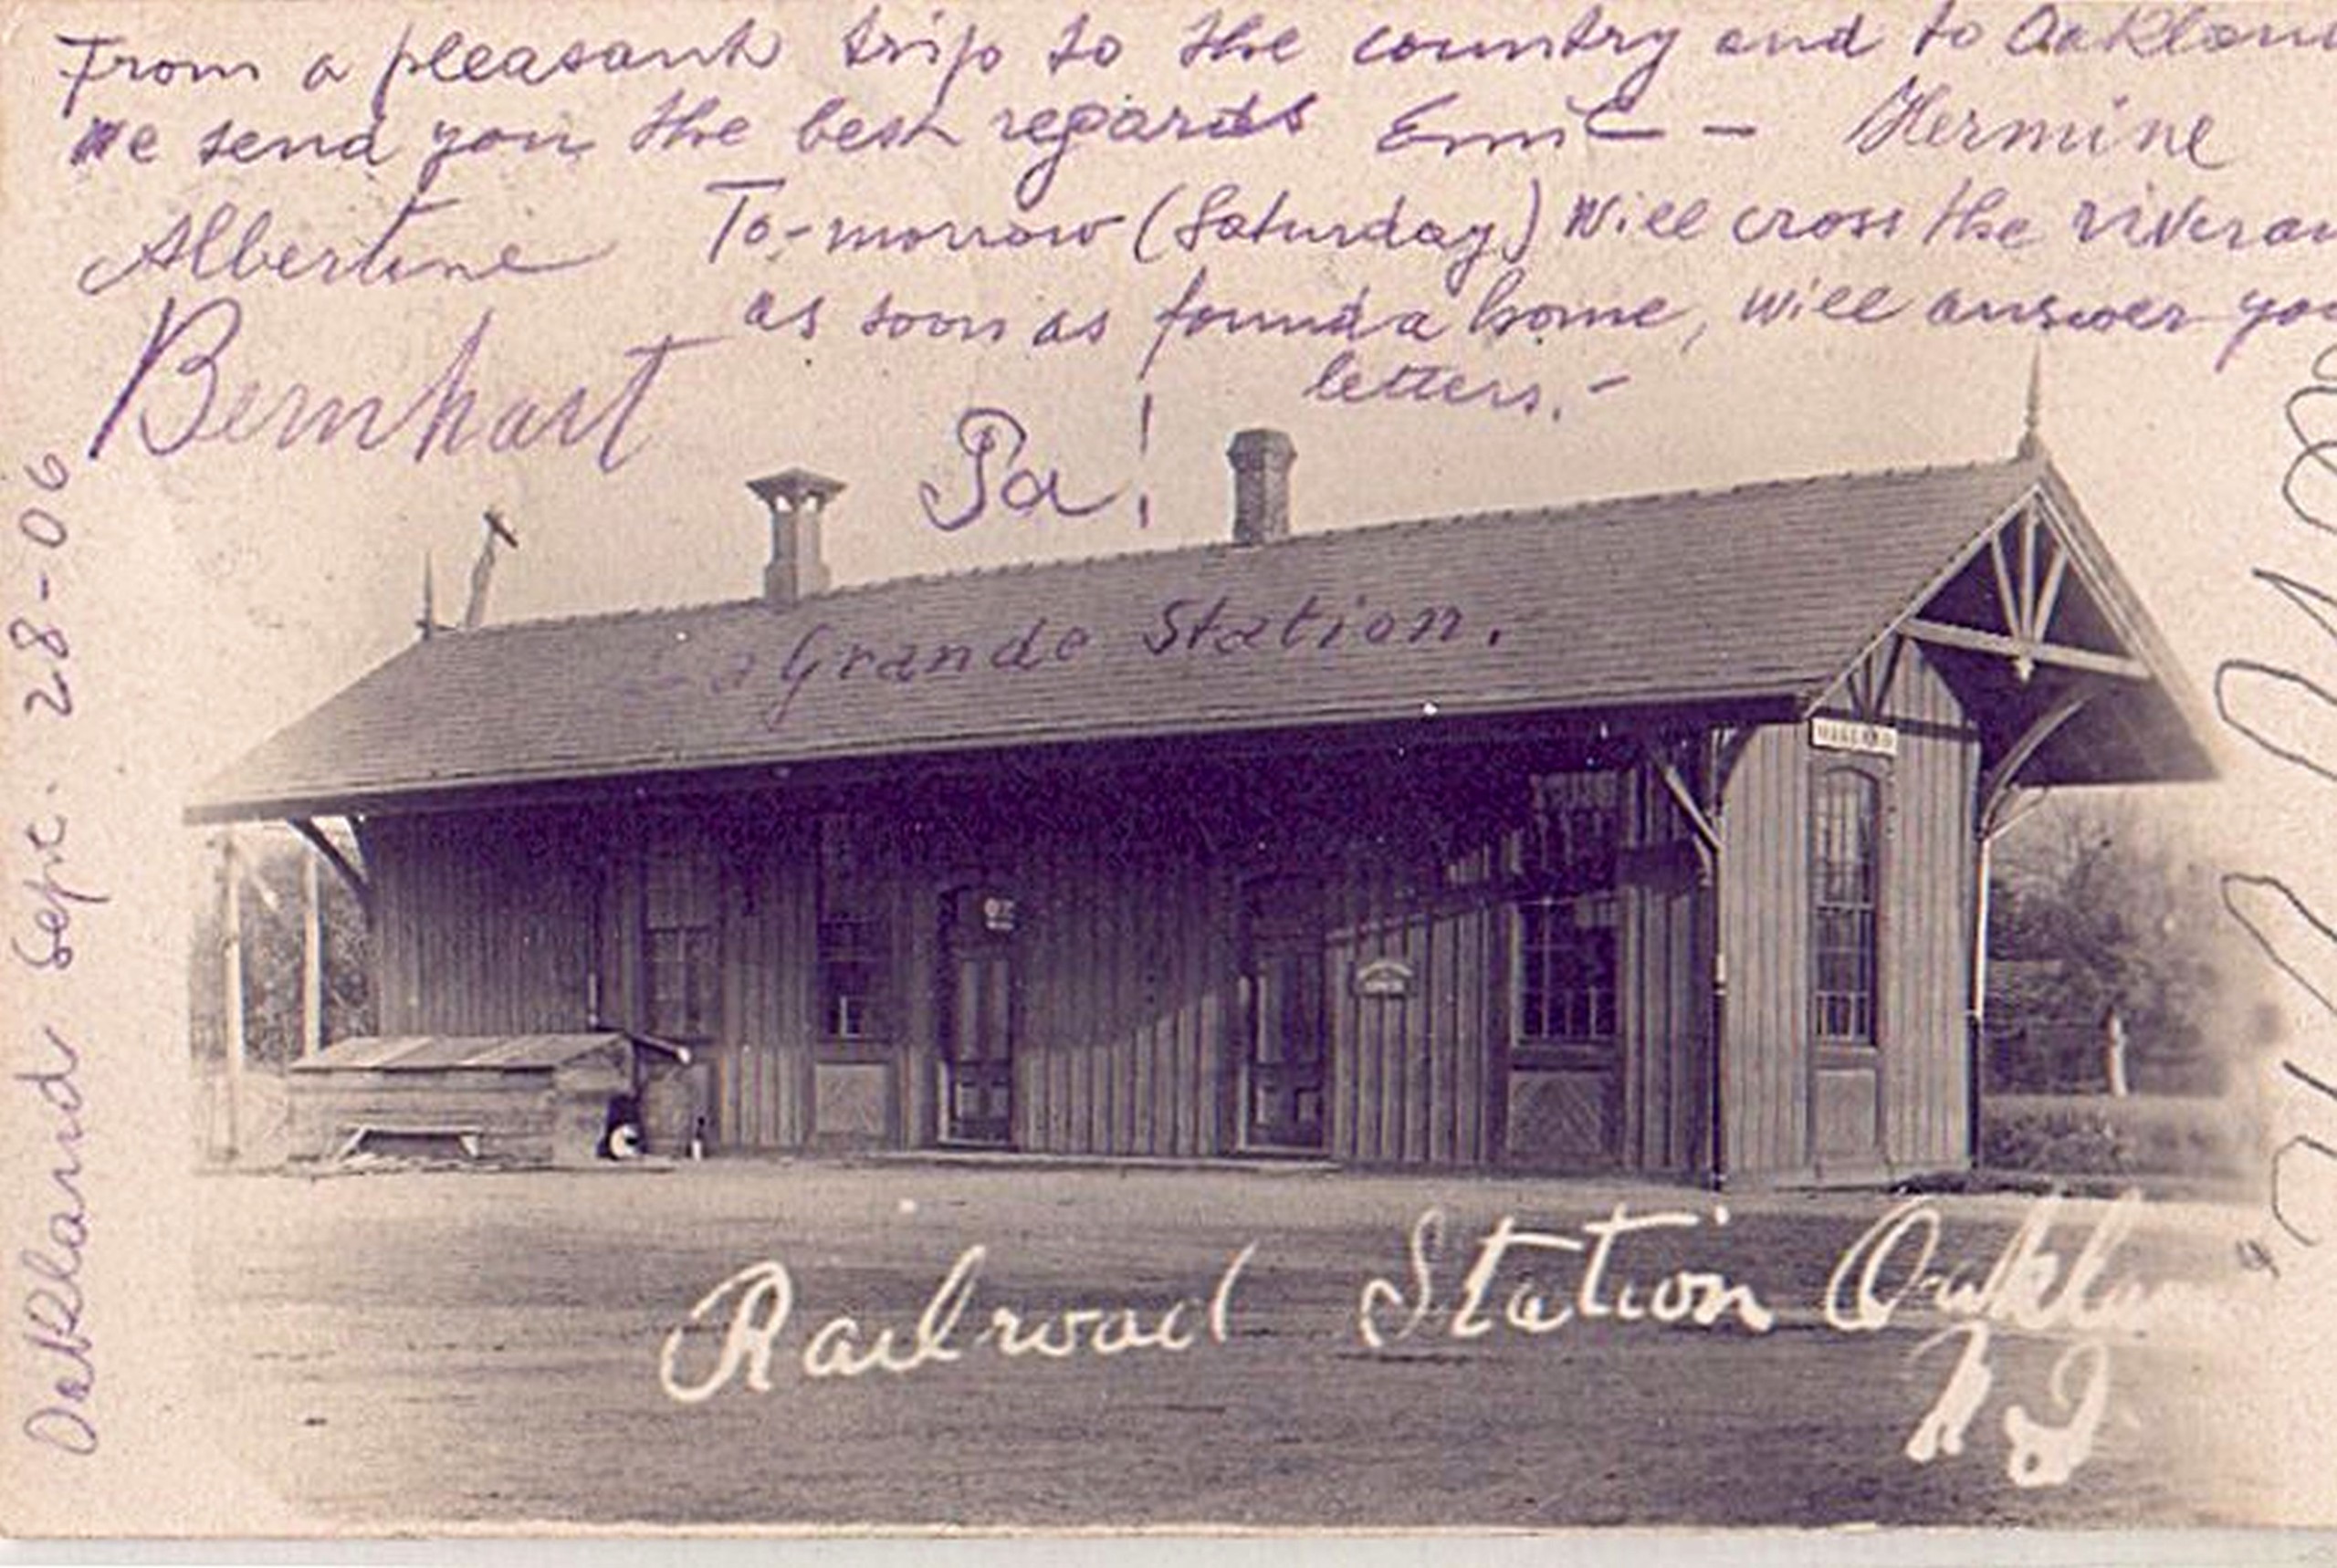 From a pleasant trip to the country and to Oakland
we send you the best regards Emil — Hermine
Albertine To-morrow (Saturday) will cross the river an
as soon as found a home, will answer you
letters.-
Bernhart
Pa!
La Grande Station.
OAKLAND
Railroad Station Oakland
N J
Oakland Sept. 28-06